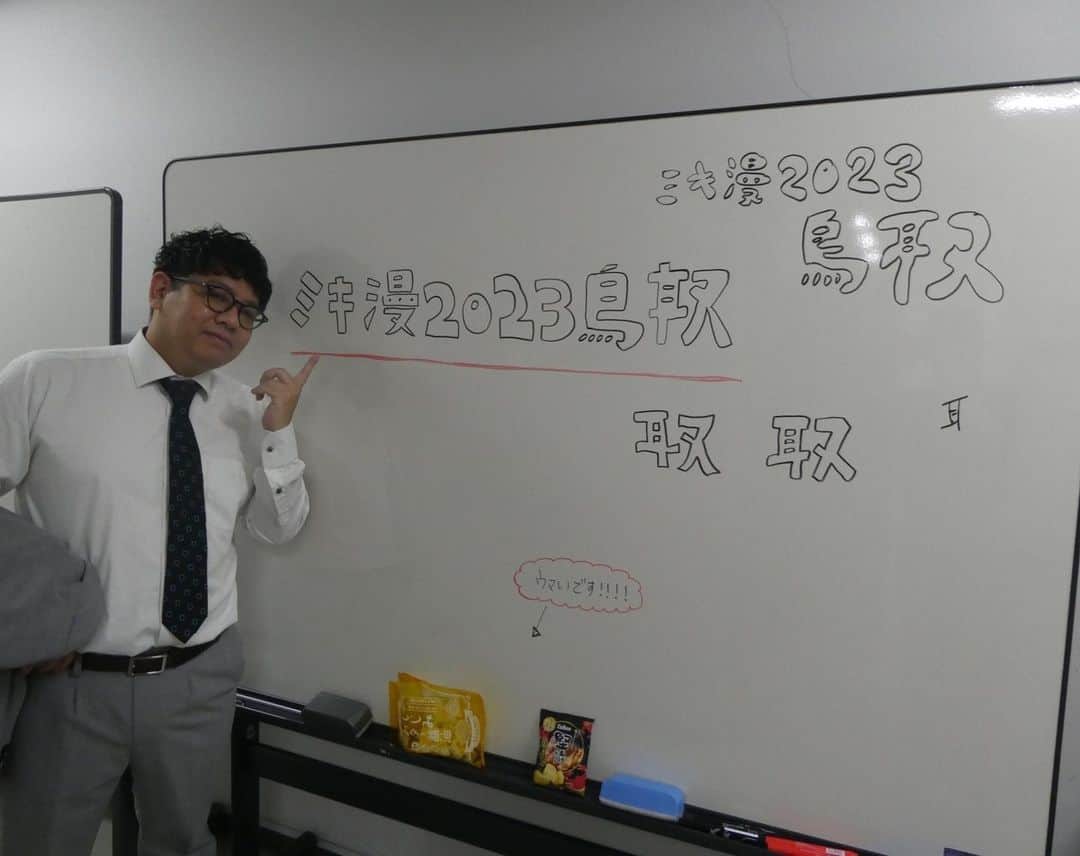 ミキ漫2023
鳥取
ミキ漫2023鳥取
取 取
耳
ウマいです!!!!
Calbee